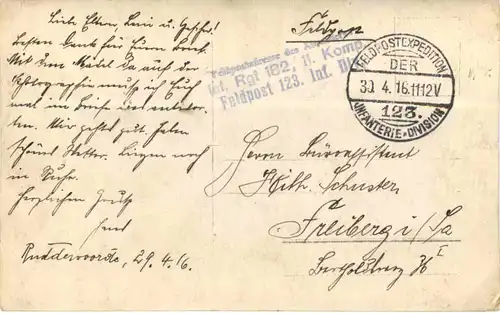 Liebe Eltern, Leni u. Geschw!
besten Dank für Euren Brief.
Mit dem Mädel da auf der
Photographie muss ich Euch
mal im Briefe
Wir gehts gut, haben
schönes Wetter. Liegen noch
in Ruhe.
Herzlichen Gruß
Ruddervoorde, 29.4.16.
Feldpost
Inf. Rgt 182, 11. Komp.
Feldpost 123. Inf. Div.
FELDPOSTEXPEDITION
DER
30 4.16.11-12V
123.
INFANTERIE-DIVISION
Herrn Büroassistent
Wilh. Schuster
Freiberg i/Sa